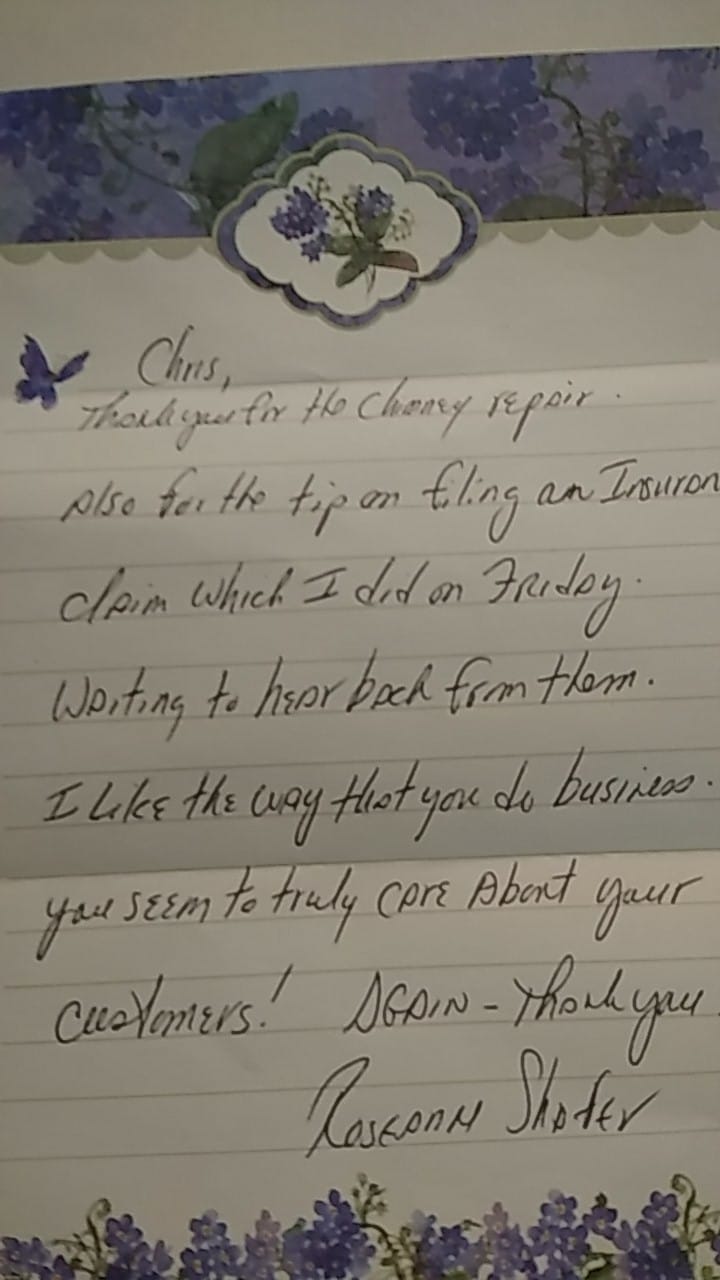 Chris,
Thank you for the Chimney repair.
Also for the tip on filing an Insuran
claim which I did on Friday.
Waiting to hear back from them.
I like the way that you do business.
you seem to truly care About your
customers! AGAIN - Thank you.
Roseann Shafer